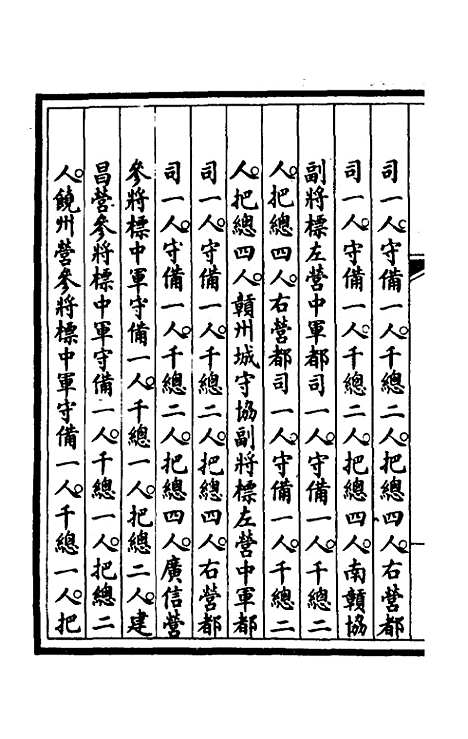 司一人。守備一人。千總二人。把總四人。右營都
司一人。守備一人。千總二人。把總四人。南贛協
副將標左營中軍都司一人。守備一人。千總二
人。把總四人。右營都司一人。守備一人。千總二
人。把總四人。贛州城守協副將標左營中軍都
司一人。守備一人。千總二人。把總四人。右營都
司一人。守備一人。千總二人。把總四人。廣信營
參將標中軍守備一人。千總一人。把總二人。建
昌營參將標中軍守備一人。千總一人。把總二
人。饒州營參將標中軍守備一人。千總一人。把